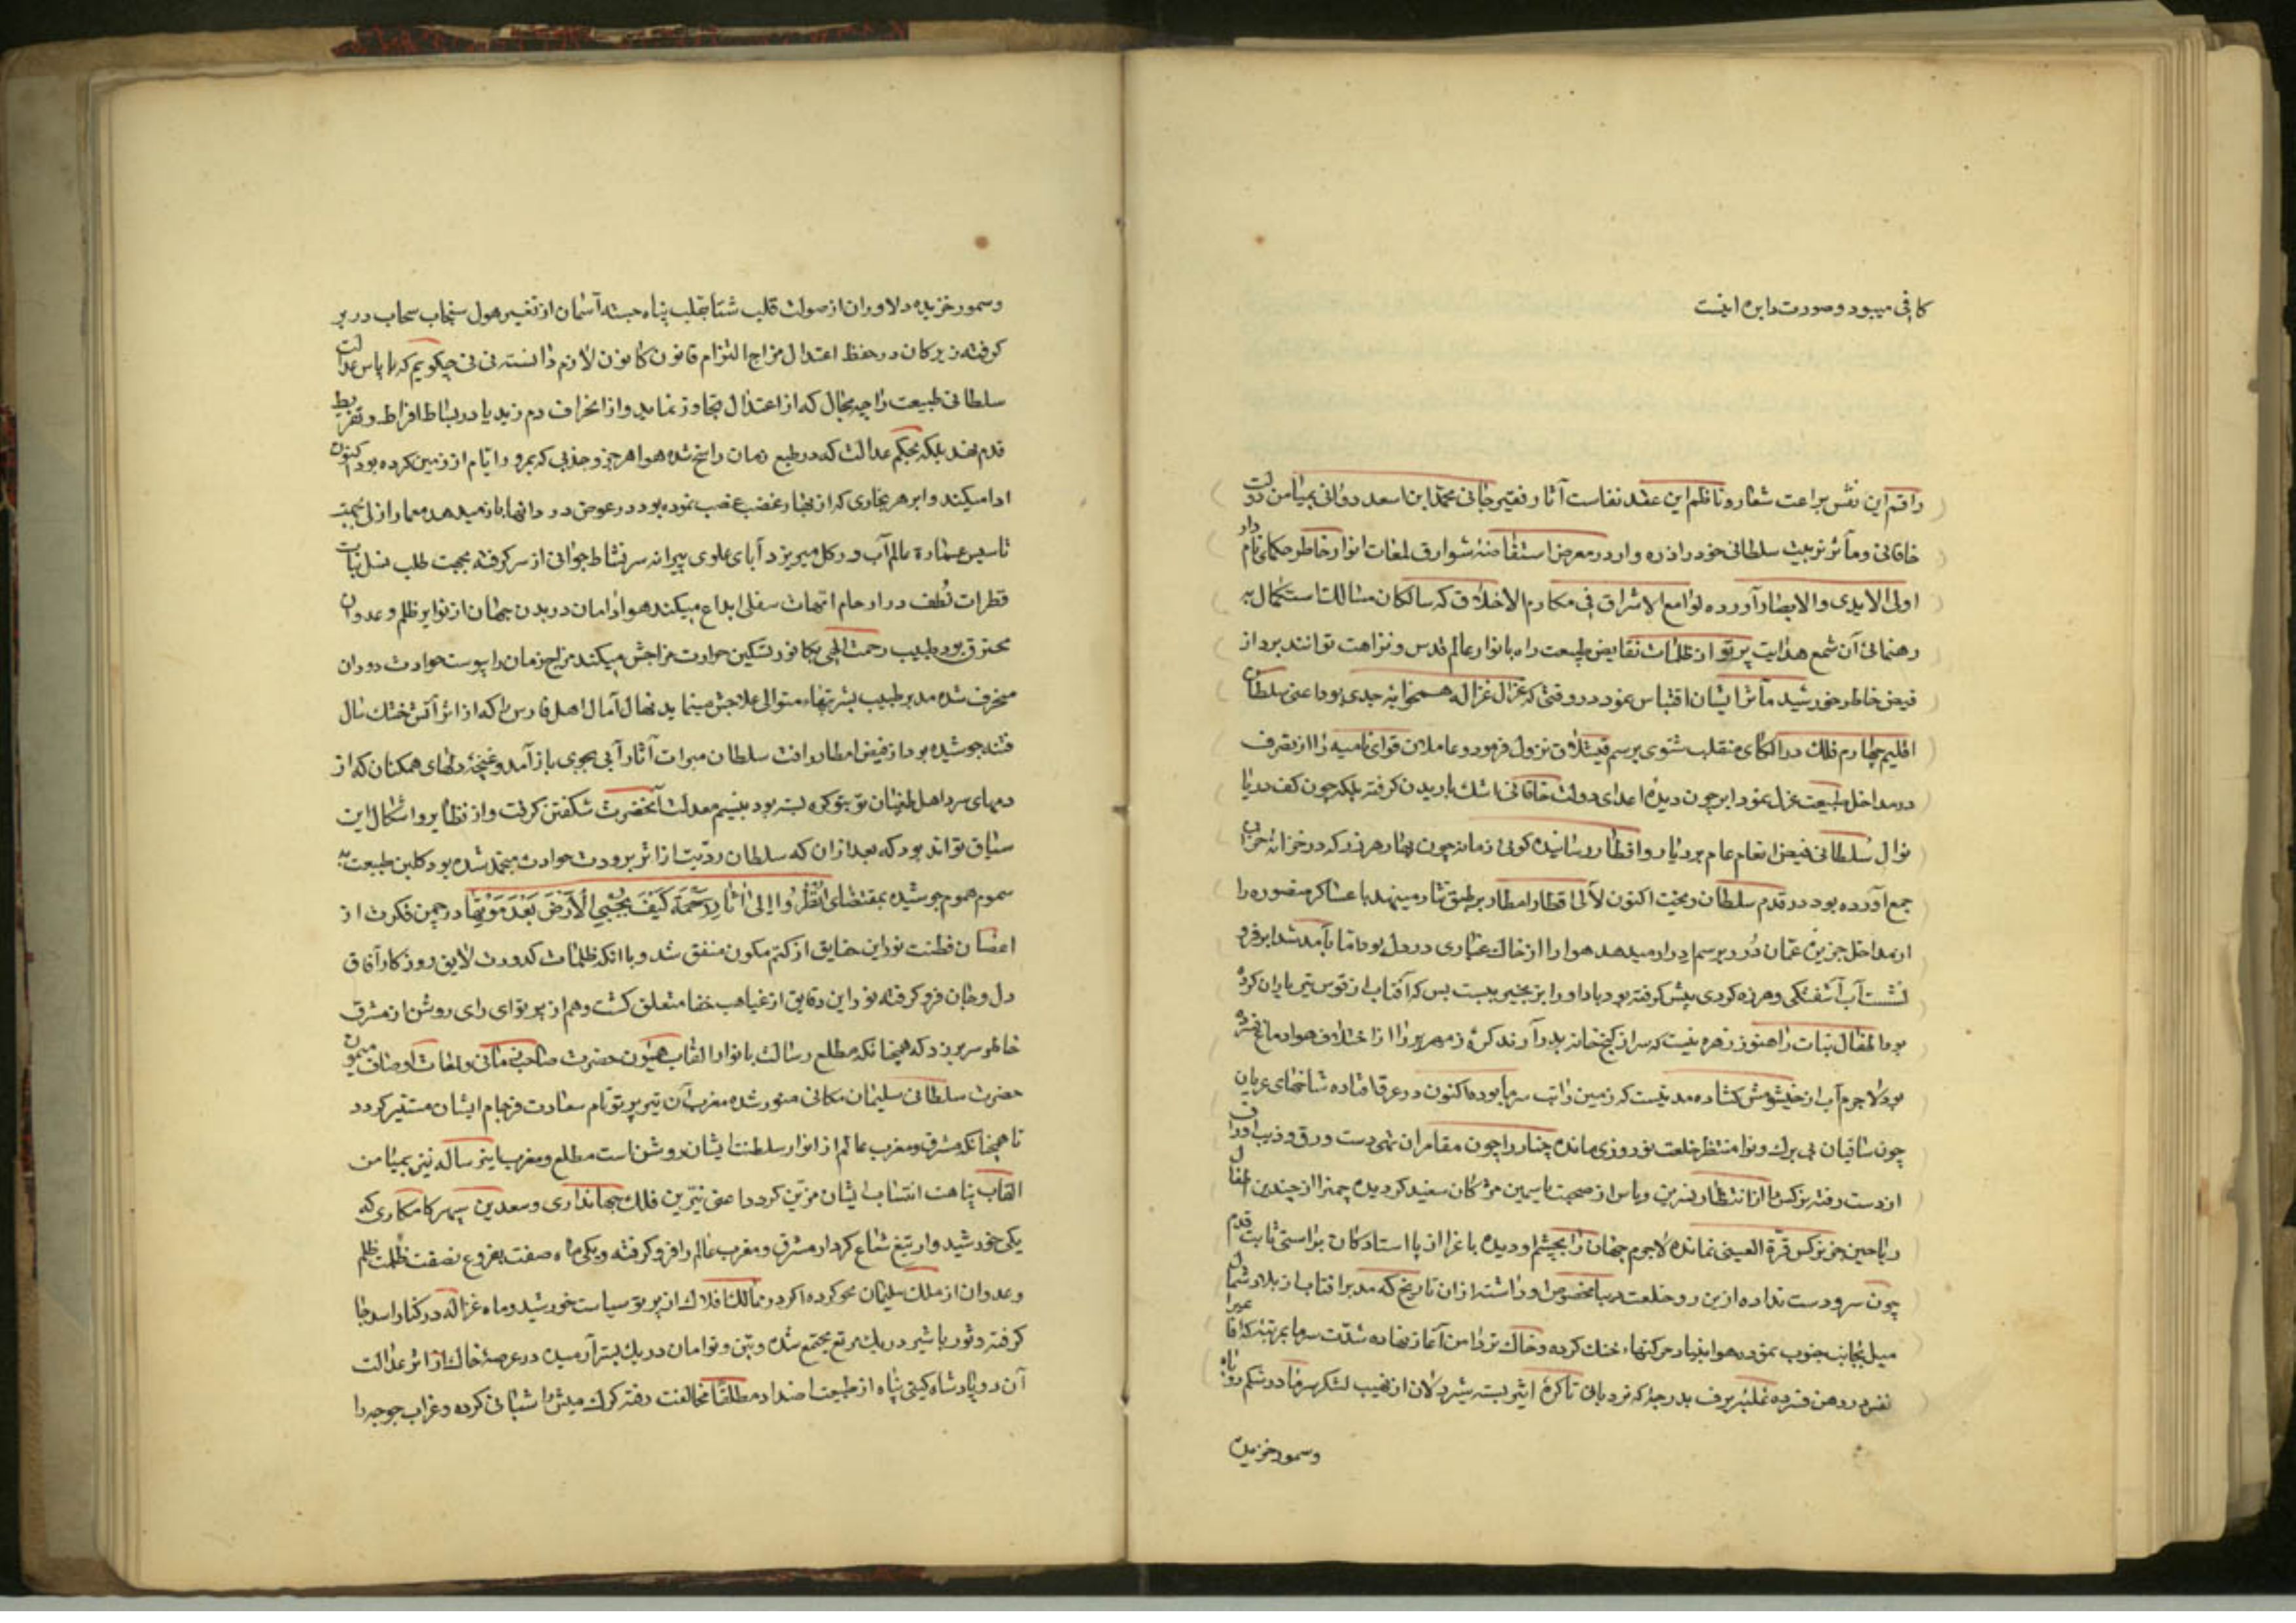 کافی میبود و صورت دایره اینست
راقم این نقش براعت شعار و ناظم این عقد نفاست آثار فقیر جانی محمد ابن اسعد دوانی بمیامن دولت
خاقانی و مآثر تربیت سلطانی خود را ذره وار در معرض استفاضهٔ شوارق لمعات انوار خاطر حکمای نامدار
اولی الایدی و الابصار آورده لوامع الاشراق فی مکارم الاخلاق که سالکان مسالک استکمال به
رهنمائی آن شمع هدایت پرتو از ظلمات نقایص طبیعت راه بانوار عالم قدس و نزاهت توانند برد از
فیض خاطر خورشید مآثر ایشان اقتباس نمود در وقتی که غزال غزاله همخوابه جدی بود اعنی سلطان
اقلیم چهارم فلک در الکای منقلب شتوی برسم قیشلاق نزول فرمود و عاملان قوای نامیه را از تصرف
در مداخل طبیعت عزل نمود ابر چون دیدهٔ اعدای دولت خاقانی اشک باریدن گرفته بلکه چون کف دریا
نوال سلطانی فیض انعام عام بر دیار و اقطار رسانیده گوئی زمانه چون بهار هر زر که در خزانه خزان
جمع آورده بود در قدم سلطان ریخت اکنون لآلی اقطار امطار بر طبق نثار مینهد یا عساکر منصوره را
از مداخل جزین عمان دُرر برسم ادرار میدهد هوا را از خاک غباری در دل بود تا بآمد شد ابر فرو
نشست آب آشفتگی و هرزه گردی پیش گرفته بود باد او را بزنجیر ببست بس که آفتاب از قوس تیر باران کرده
بود اطفال نبات را هنوز زهره نیست که سر از کنج خانه بدر آرند کرهٔ زمهریر را از اختلاف هوا دماغ فسرده
بود لاجرم آب از خیشومش گشاده مدتیست که زمین را تب سرما بوده اکنون در عرق افتاده شاخهای عریان
چون ساقیان بی برگ و نوا منتظر خلعت نوروزی مانده چنار را چون مقامران تهی دست ورق و ذهب اوراق
از دست رفته نرگس را از انتظار نسرین و یاس از صحبت یاسمین مژگان سفید گردیده چمن را از چندین اطفال
ریاحین جز نرگس قرة العینی نمانده لاجرم جهان را بچشم او دیده باغ را از پا استادگان براستی ثابت قدم
چون سرو دست نداده ازین رو خلعت دیبا مخصوص او داشته از آن تاریخ که مدبر آفتاب از بلاد شمال
میل بجانب جنوب نمود هوا بنیاد حرکتهاء خنک کرده و خاک تر دامن آغاز نهاده شدت سرما بمرتبه که
نفس در دهن فسرده غلبهٔ برف بدرجهٔ که نردبان تا کرهٔ اثیر بسته شیردلان از نهیب لشکر سرما در شکم روباه
وسمور خزیده
وسمور خزیده دلاوران از صولت قلب شتا بقلب پناه جسته آسمان از تغیر هول سنجاب سحاب در بر
گرفته زیرکان در حفظ اعتدال مزاج التزام قانون کانون لازم دانسته نی نی چگویم که با پاس عدالت
سلطانی طبیعت را چه مجال که از اعتدال تجاوز نماید و از انحراف دم زند یا در بساط افراط و تفریط
قدم نهد بلکه بحکم عدالت که در طبع زمان راسخ شده هوا هر جزو جذبی که بمرور ایام از زمین کرده بود اکنون
ادا میکند و ابر هر بخاری که از بحار غصب نموده بود در عوض در و دانها باز میدهد معمار ازل
تاسیس عمارة عالم آب در گل میریزد آبای علوی پیرانه سر نشاط جوانی از سر گرفته بجهت طلب نسل نبات
قطرات نطف در ارحام امهات سفلی ابداع میکند هوا و امان در بدن جهان از نوایر ظلم و عدوان
محترق بود طبیب رحمت الهی بکافور تسکین حرارت مزاجش میکند مزاج زمان را یبوست حوادث دوران
منحرف شده مدبر طبیب بشربتهاء متوالی علاجش مینماید نهال آمال اهل فارس که از اثر آتش خشک سال
فتنه جوشیده بود از فیض امطار رافت سلطان مبرات آثار آبی بجوی باز آمد و غنچهٔ دلهای همگنان که از
دمهای سرد اهل طغیان تو بتو گره بسته بود بنسیم معدلت آنحضرت شکفتن گرفت و از نظایر و اشکال این
سیاق تواند بود که بعد از آن که سلطان رویت از اثر برودت حوادث منجمد شده بود و گلبن طبیعت به
سموم هموم جوشیده بمقتضای اُنْظُرُوا إلی آثارِ رَحْمَة کَیْفَ یُحْیِی الْأَرْضَ بَعْدَ مَوْتِهَا در چمن فکرت از
اغصان فطنت نور این حقایق از کتم مکون منفتق شد و با آنکه ظلمات کدورت لایق روزگار آفاق
دل و جان فرو گرفته نور این دقایق از غیاهب خفا متعلق گشت و هم از پرتوای رای روشن از مشرق
خاطر سر بر زد که همچنانکه مطلع رسالت بانوار القاب همیون حضرت صاحب قرانی و لمعات اوصاف میمون
حضرت سلطانی سلیمان مکانی منور شده مغرب آن نیز بپرتو نام سعادت فرجام ایشان مستنیر گردد
تا همچنانکه مشرق و مغرب عالم از انوار سلطنت ایشان روشن است مطلع و مغرب این رساله نیز بمیامن
القاب نباهت انتساب ایشان مزین گردد اعنی نیرین فلک جهانداری و سعدین سپهر کامکاری که
یکی خورشید وار بتیغ شعاع کردار مشرق و مغرب عالم را فرو گرفته و یکی ماه صفت بفروغ نصفت ظلمت ظلم
و عدوان از ملک سلیمان محو کرده اگر در ممالک افلاک از پرتو سیاست خورشید و ماه غزاله در کنار اسد جا
گرفته و ثور با شیر در یک مرتع مجتمع شده و تنین و توامان در یک بستر آرمیده در عرصهٔ خاک از اثر عدالت
آن دو پادشاه گیتی پناه از طبیعت اضداد مطلقا مخالفت رفته گرگ میش را شبانی کرده و غراب جوجه را